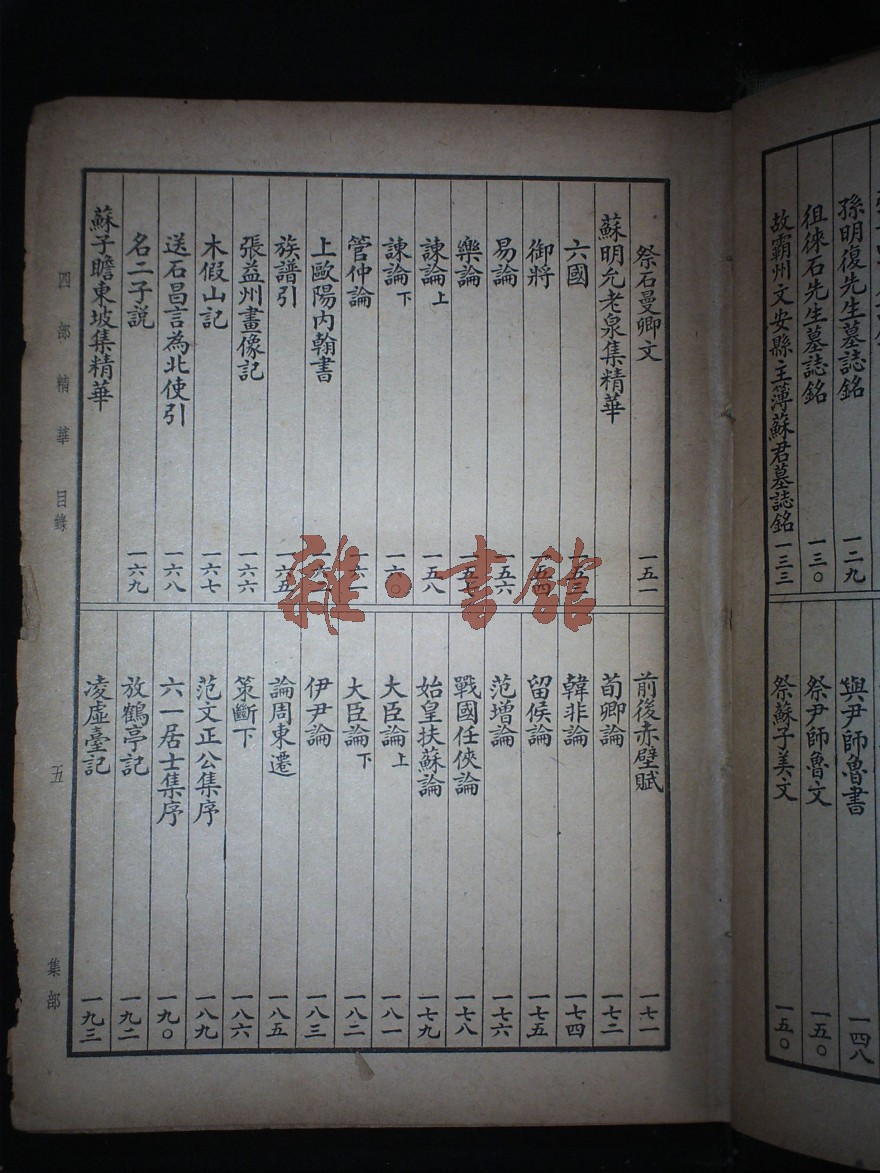 孫明復先生墓誌銘 一二九
徂徠石先生墓誌銘 一三〇
故霸州文安縣主簿蘇君墓誌銘 一三三
與尹師魯書 一四八
祭尹師魯文 一五〇
祭蘇子美文 一五〇
祭石曼卿文 一五一
蘇明允老泉集精華
六國 一五三
御將 一五四
易論 一五六
樂論 一五七
諫論上 一五八
諫論下 一六〇
管仲論
上歐陽內翰書
族譜引 一六五
張益州畫像記 一六六
木假山記 一六七
送石昌言為北使引 一六八
名二子説 一六九
蘇子瞻東坡集精華
前後赤壁賦 一七一
荀卿論 一七二
韓非論 一七四
留侯論 一七五
范增論 一七六
戰國任俠論 一七八
始皇扶蘇論 一七九
大臣論上 一八一
大臣論下 一八二
伊尹論 一八三
論周東遷 一八五
策斷下 一八六
范文正公集序 一八九
六一居士集序 一九〇
放鶴亭記 一九二
凌虛臺記 一九三
四部精華 目錄 五 集部
雜·書館